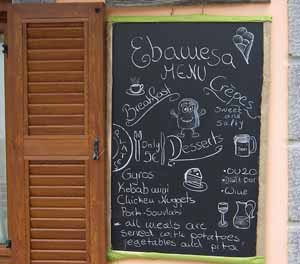 Ebawesa
MENU
Breakfast
Crêpes
Sweet and
salty
Dinner
Only
5€
Desserts
Gyros
Kebab mini
Chicken Nuggets
Pork-Souvlaki
• all meals are
served with potatoes,
vegetables and pita
• OUZO
• Wine